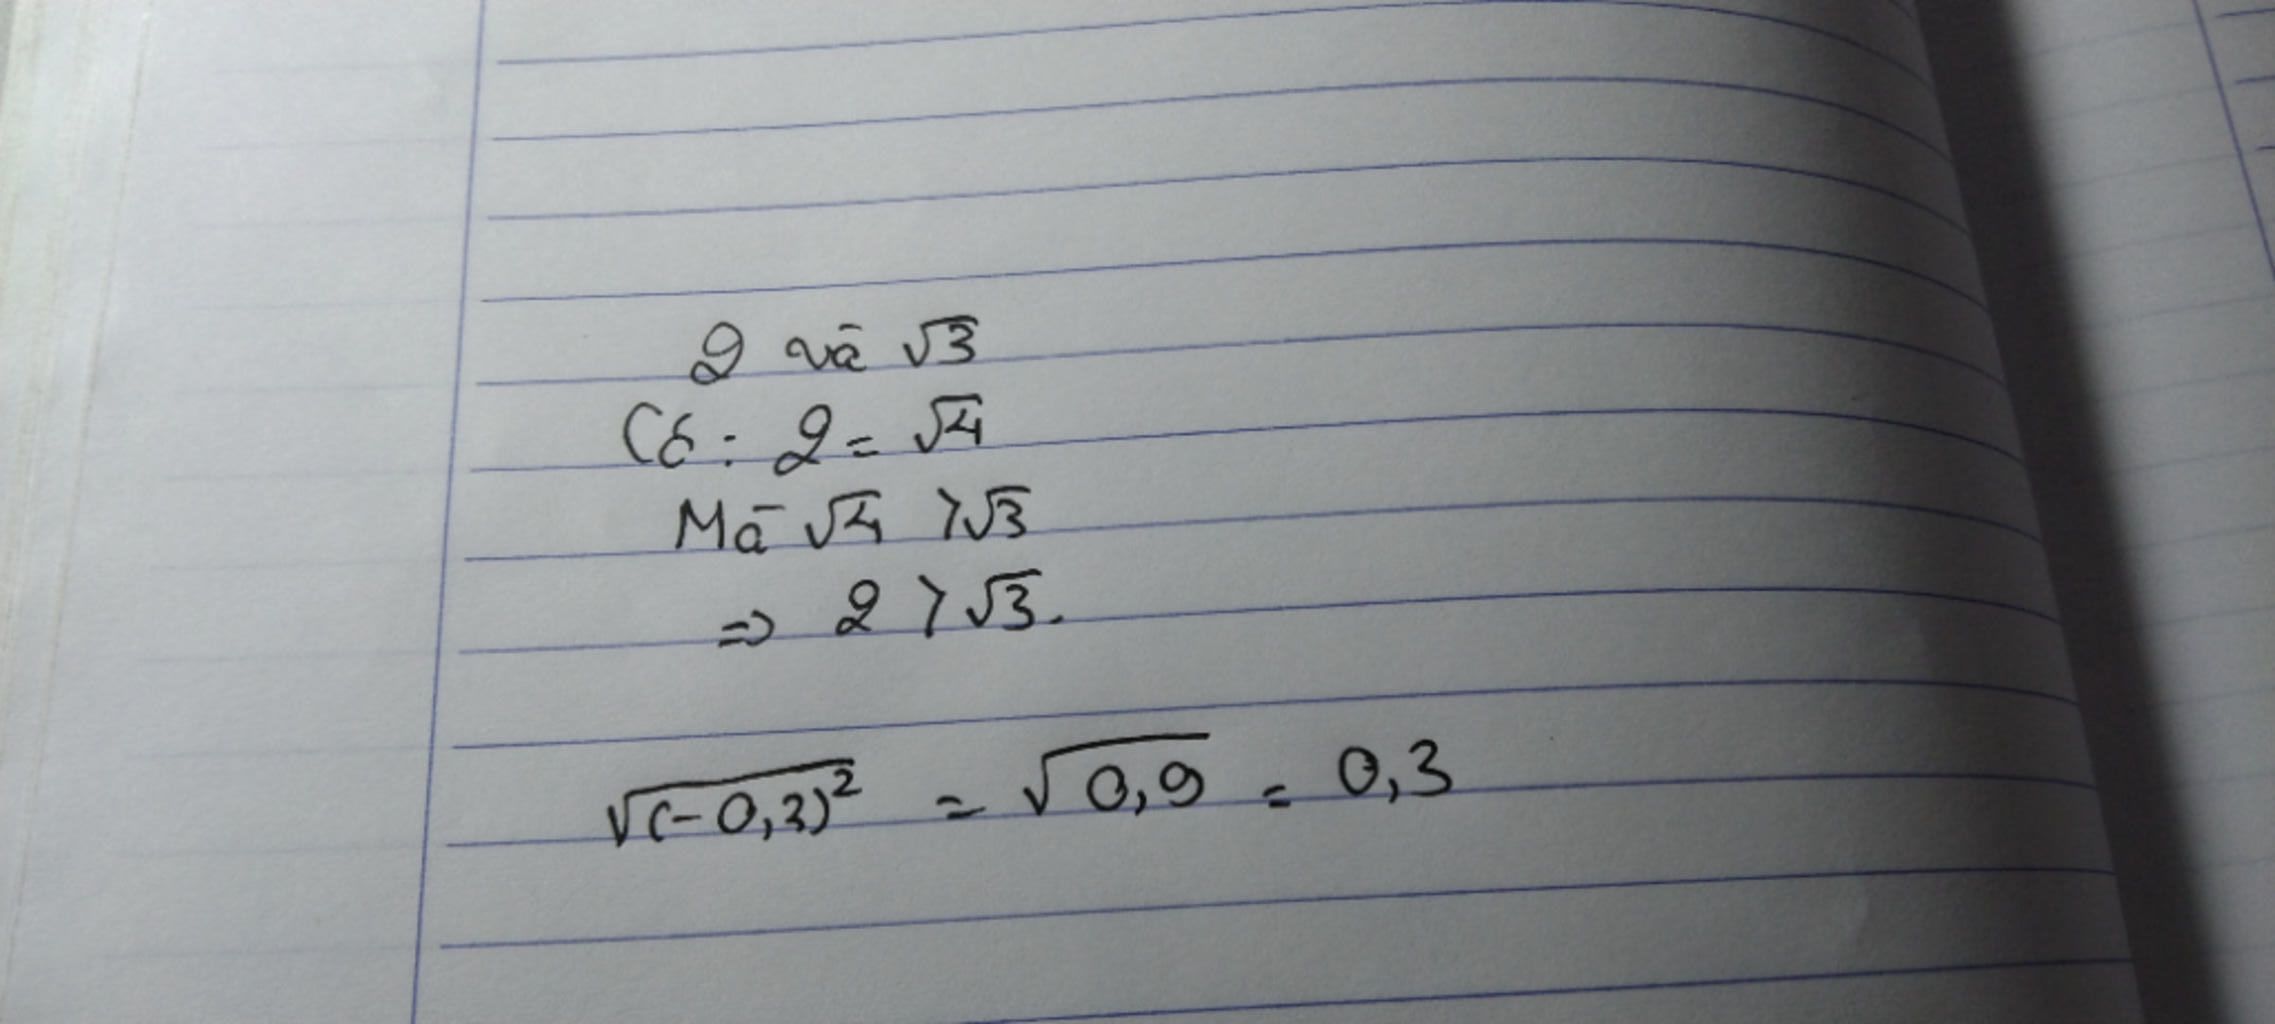 2 và √3
Có : 2 = √4
Mà √4 > √3
⇒ 2 > √3.
√(-0,3)² = √0,9 = 0,3